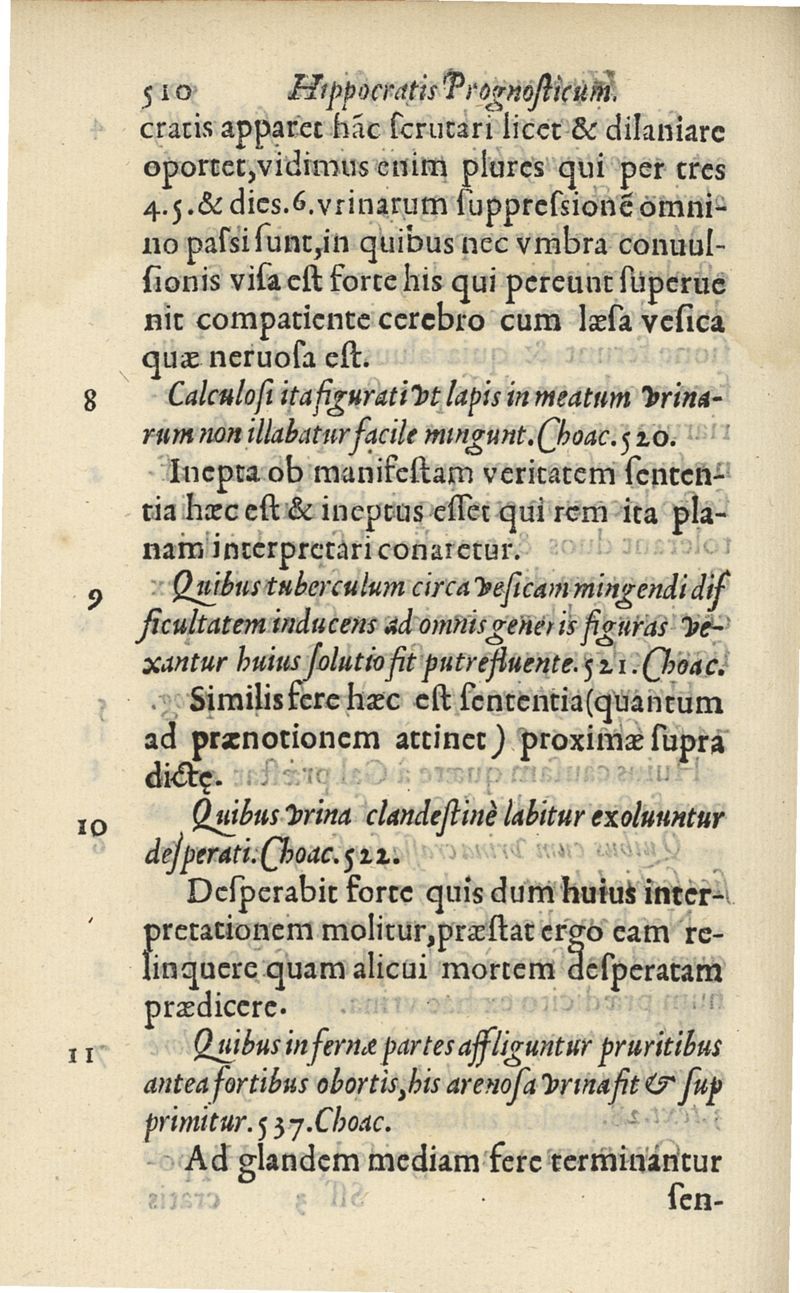 510 Hippocratis Prognosticum.
cratis apparet hãc scrutari licet & dilaniare
oportet, vidimus enim plures qui per tres
4.5.& dies.6.vrinarum suppressionẽ omni-
no passi sunt, in quibus nec vmbra conuul-
sionis visa est forte his qui pereunt superue
nit compatiente cerebro cum læsa vesica
quæ neruosa est.
8 Calculosi ita figurati vt lapis in meatum vrina-
rum non illabatur facile mingunt. Choac. 520.
Inepta ob manifestam veritatem senten-
tia hæc est & ineptus esset qui rem ita pla-
nam interpretari conaretur.
9 Quibus tuberculum circa vesicam mingendi dif
ficultatem inducens ad omnis generis figuras ve-
xantur huius solutio fit putrefluente. 521. Choac.
Similis fere hæc est sententia (quantum
ad prænotionem attinet) proximæ supra
dictę.
10 Quibus vrina clandestinè labitur exoluuntur
desperati. Choac. 522.
Desperabit forte quis dum huius inter-
pretationem molitur, præstat ergo eam re-
linquere quam alicui mortem desperatam
prædicere.
11 Quibus infernæ partes affliguntur pruritibus
antea fortibus obortis, his arenosa vrina fit & sup
primitur. 537. Choac.
Ad glandem mediam fere terminantur
sen-